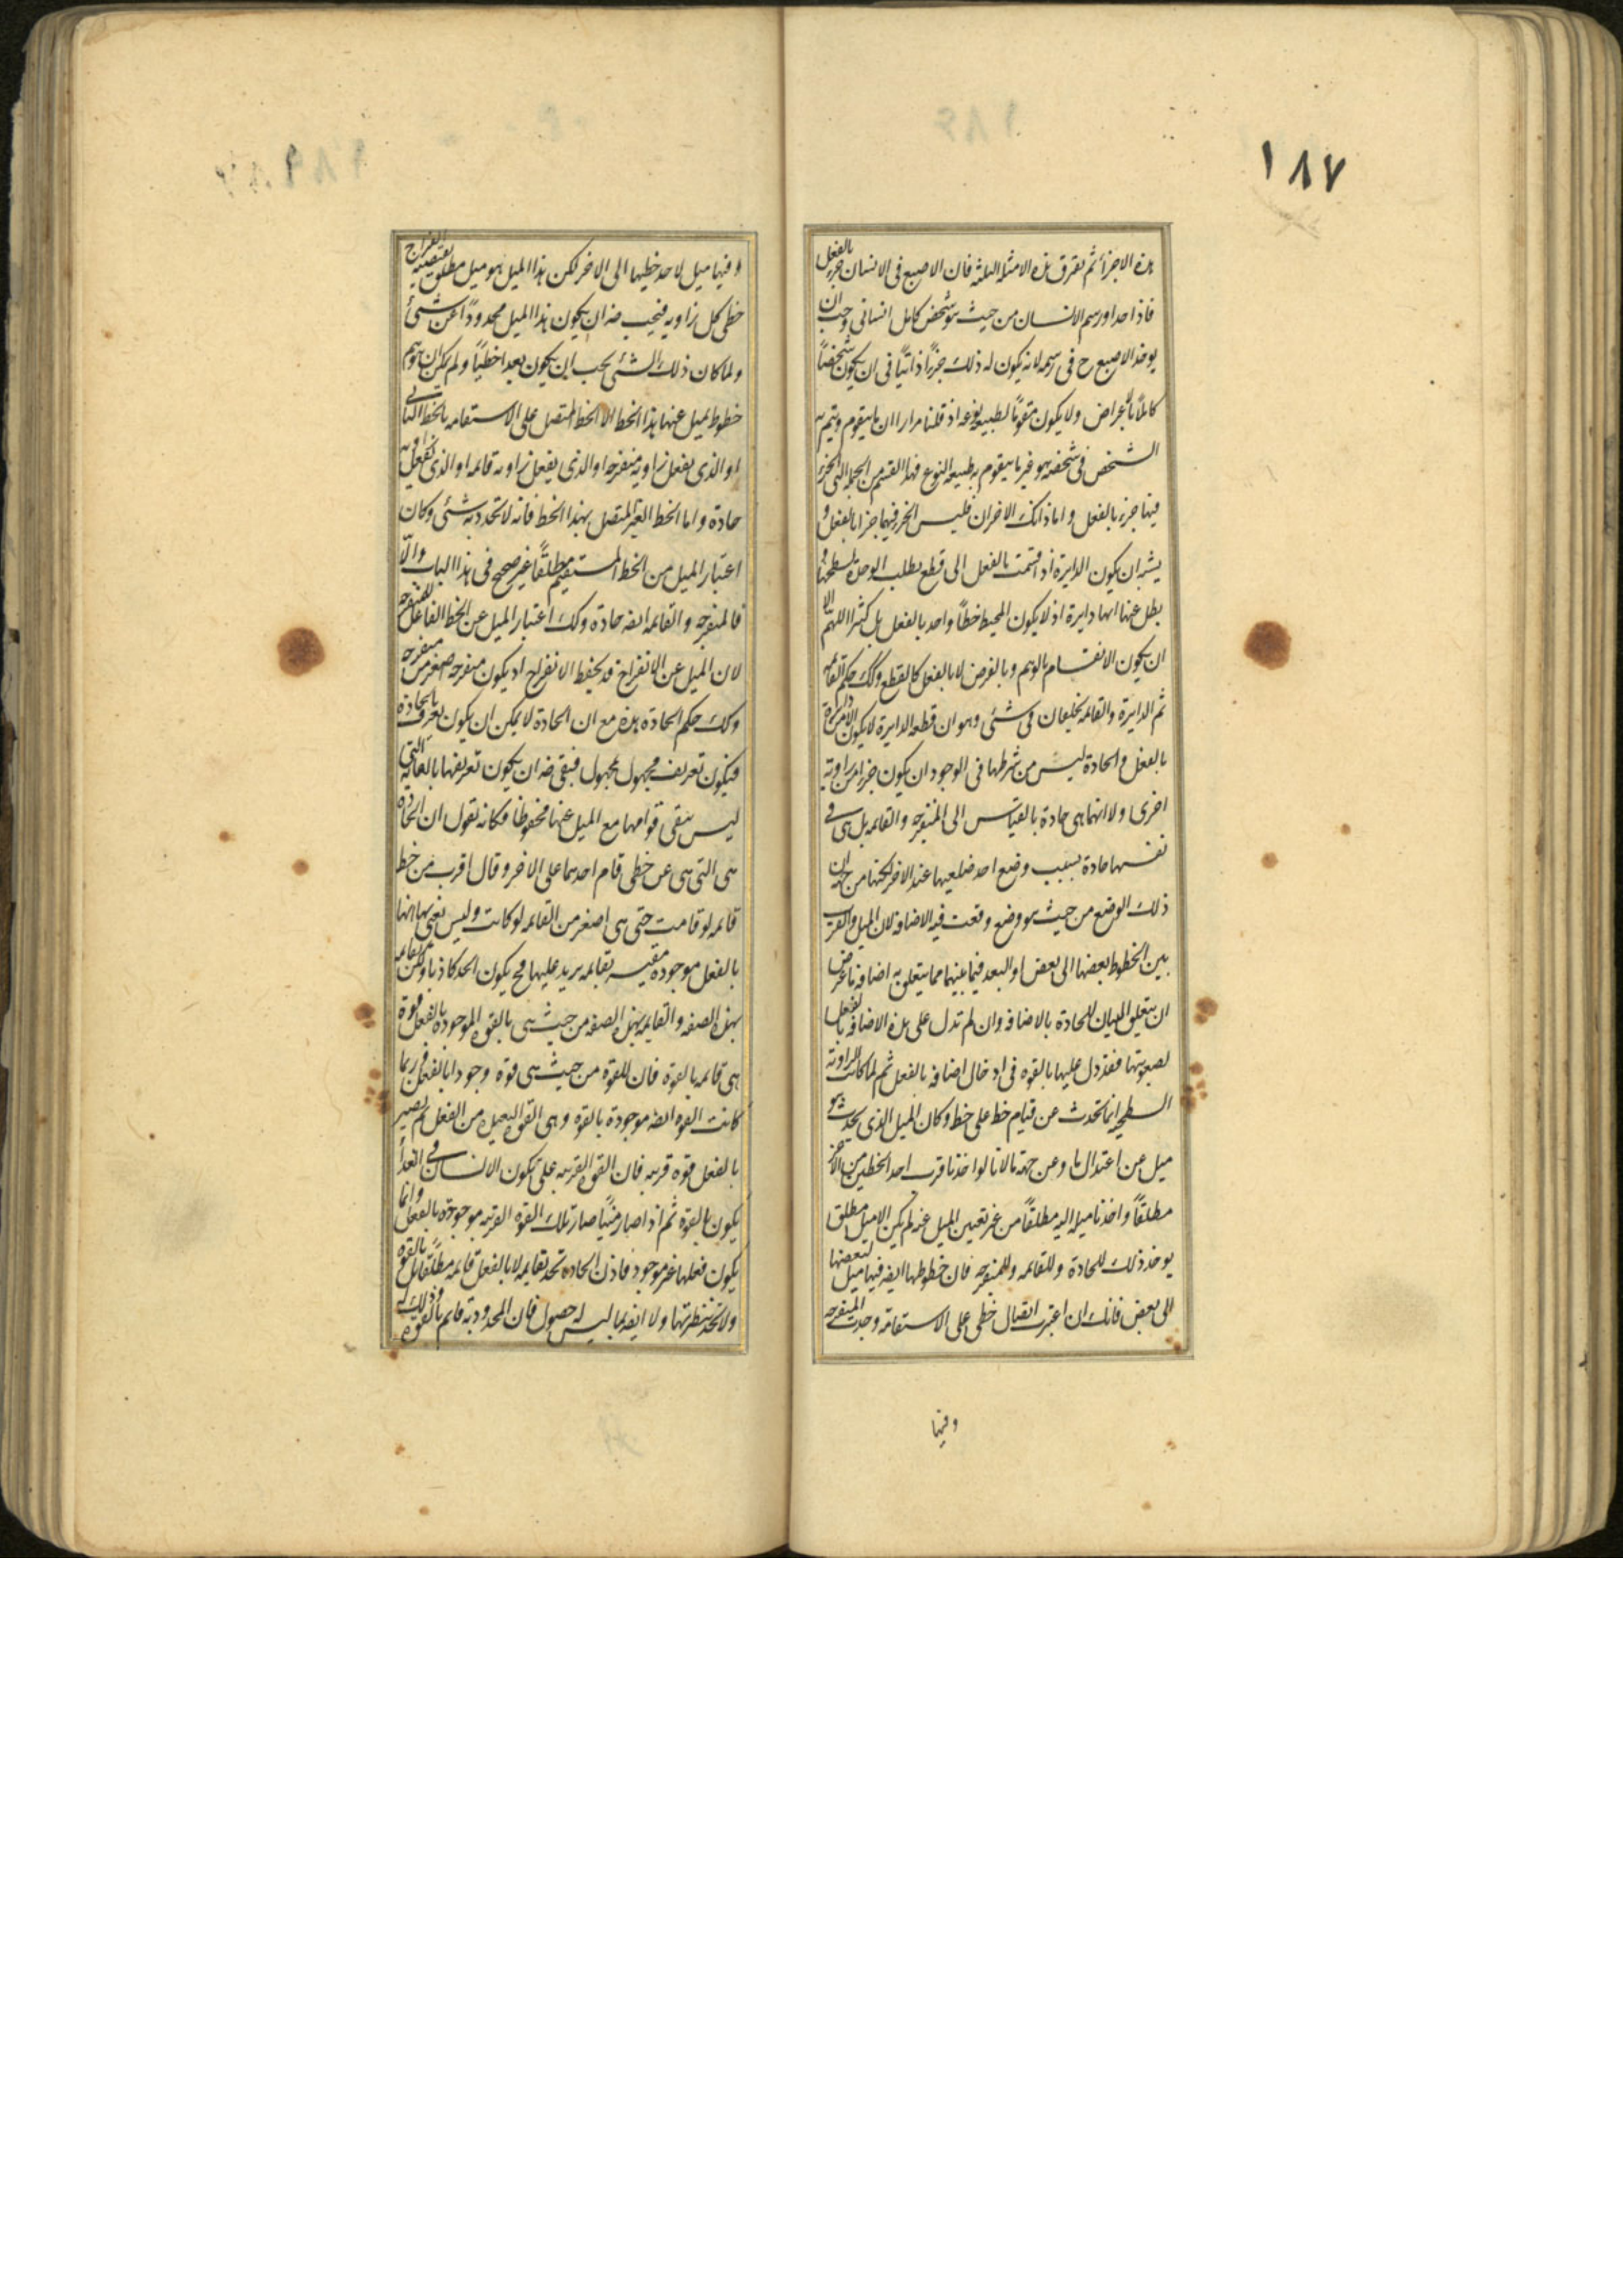 ١٨٧
هذه الاجزاء ثم يفرق هذه الامثلة الثلثة فان الاصبع فى الانسان جزء بالفعل
فاذا حد او رسم الانسان من حيث هو شخص كامل انسانى وجب ان
يوخذ الاصبع ح فى رسمه لانه يكون له ذلك جزءًا ذاتيًا فى ان يكون شخصًا
كاملًا بالاعراض ولا يكون مقومًا لطبيعه نوعه اذ قلنا مرارا ان ما يتقوم ويتم به
الشخص فى شخصه هو غير ما يتقوم به طبيعه النوع فهذا القسم من الجمله التى الجزء
فيها جزء بالفعل واما ذانك الاخران فليس الجزء فيهما جزا بالفعل و
يشبه ان يكون الدايرة اذ اقسمت بالفعل الى قطع بطلب الوحدة لسطحها و
بطل عنها انها دايرة اذ لا يكون المحيط خطًا واحد بالفعل بل كثيرا اللهم الا
ان يكون الانقسام بالوهم وبالفرض لا بالفعل كالقطع وكك حكم القائمه
ثم الدايرة والقايمه يختلفان فى شئى وهو ان قطعه الدايرة لا يكون الا من دايرة
بالفعل والحادة ليس من شرطها فى الوجود ان يكون جزءا من زاويه
اخرى ولا انها هى حادة بالقياس الى المنفرجه والقايمه بل هى فى
نفسها حادة بسبب وضع احد ضلعيها عند الاخر لكنها من جهة ان
ذلك الوضع من حيث هو وضع وقعت فيه الاضافه لان الميل والقرب
بين الخطوط بعضها الى بعض او البعد فيما بينهما مما يتعلق به اضافه ما عرض
ان يتعلق البيان للحادة بالاضافه وان لم تدل على هذه الاضافه بالفعل
لصعوبتها فقد دل عليها بالقوه فى ادخال اضافه بالفعل ثم لما كانت الزاويه
السطحيه انما تحدث عن قيام خط على خط وكان الميل الذى يحدث هو
ميل عن اعتدال ما وعن جهة ما لانا لو اخذنا قرب احد الخطين من الاخر
مطلقًا واخذنا ميله اليه مطلقًا من غير تعيين الميل عنه لم يكن الا ميل مطلق
يوخذ ذلك للحادة وللقائمه وللمنفرجه فان خطوطها ايضه فيها ميل لبعضها
الى بعض فانك ان اعتبرت اتصال خطى على الاستقامة وجدت المنفرجه
وفيها
وفيها ميل لاحد خطيها الى الاخر لكن هذا الميل هو ميل مطلق يقتضيه انفراج
خطى كل زاويه فيجب ضه ان يكون هذا الميل محدودًا عن شئى
ولما كان ذلك الشئى يجب ان يكون بعدا خطيًا ولم يكن ان يتوهم
خطوط يميل عنها هذا الخط الا الخط المتصل على الاستقامه بالخط الثانى
او الذى يفعل زاويه منفرجه او الذى يفعل زاويه قائمه او الذى يفعل زاويه
حادة واما الخط الغير المتصل بهذا الخط فانه لا تحدد به شئى وكان
اعتبار الميل من الخط المستقيم مطلقًا غير صحيح فى هذا الباب والا
فالمنفرجه والقائمه ايضه حادة وكك اعتبار الميل عن الخط الفاعل للمنفرجه
لان الميل عن الانفراج قد يحفظ الانفراج اذ يكون منفرجه اصغر من منفرجه
وكك حكم الحادة هذه مع ان الحادة لا يمكن ان يكون يعرف بالحادة
فيكون تعريف مجهول بمجهول فبقى ضه ان يكون تعريفها بالقائمه التى
ليس يبقى قوامها مع الميل عنها محفوظا فكانه تقول ان الحادة
هى التى هى عن خطى قام احدهما على الاخر وقال اقرب من خط
قائمه لو قامت حتى هى اصغر من القائمه لو كانت وليس نعنى بها انها
بالفعل موجودة مقيسه بقائمه يزيد عليها فح يكون الحد كاذبا ولكن القائمه
بهذه الصفه والقايمه بهذه الصفه من حيث هى بالقوه الموجودة بالفعل قوة
هى قائمه بالقوه فان للقوة من حيث هى قوة وجودا بالفعل ربما
كانت القوه ايضه موجودة بالقوه وهى القوه البعيده من الفعل ثم يصير
بالفعل قوه قريبه فان القوه القريبه على تكون الانسان فى الغذاء
يكون بالقوه ثم اذا صار منيًا صار تلك القوه القريبه موجوده بالفعل وانما
يكون فعلها غير موجود فاذن الحاده تحد بقايمه لا بالفعل قائمه مطلقا بل بالقوه
ولا تحد بنظيرتها ولا ايضه بما ليس له حصول فان المحدود به قايم بالقوه وذلك له